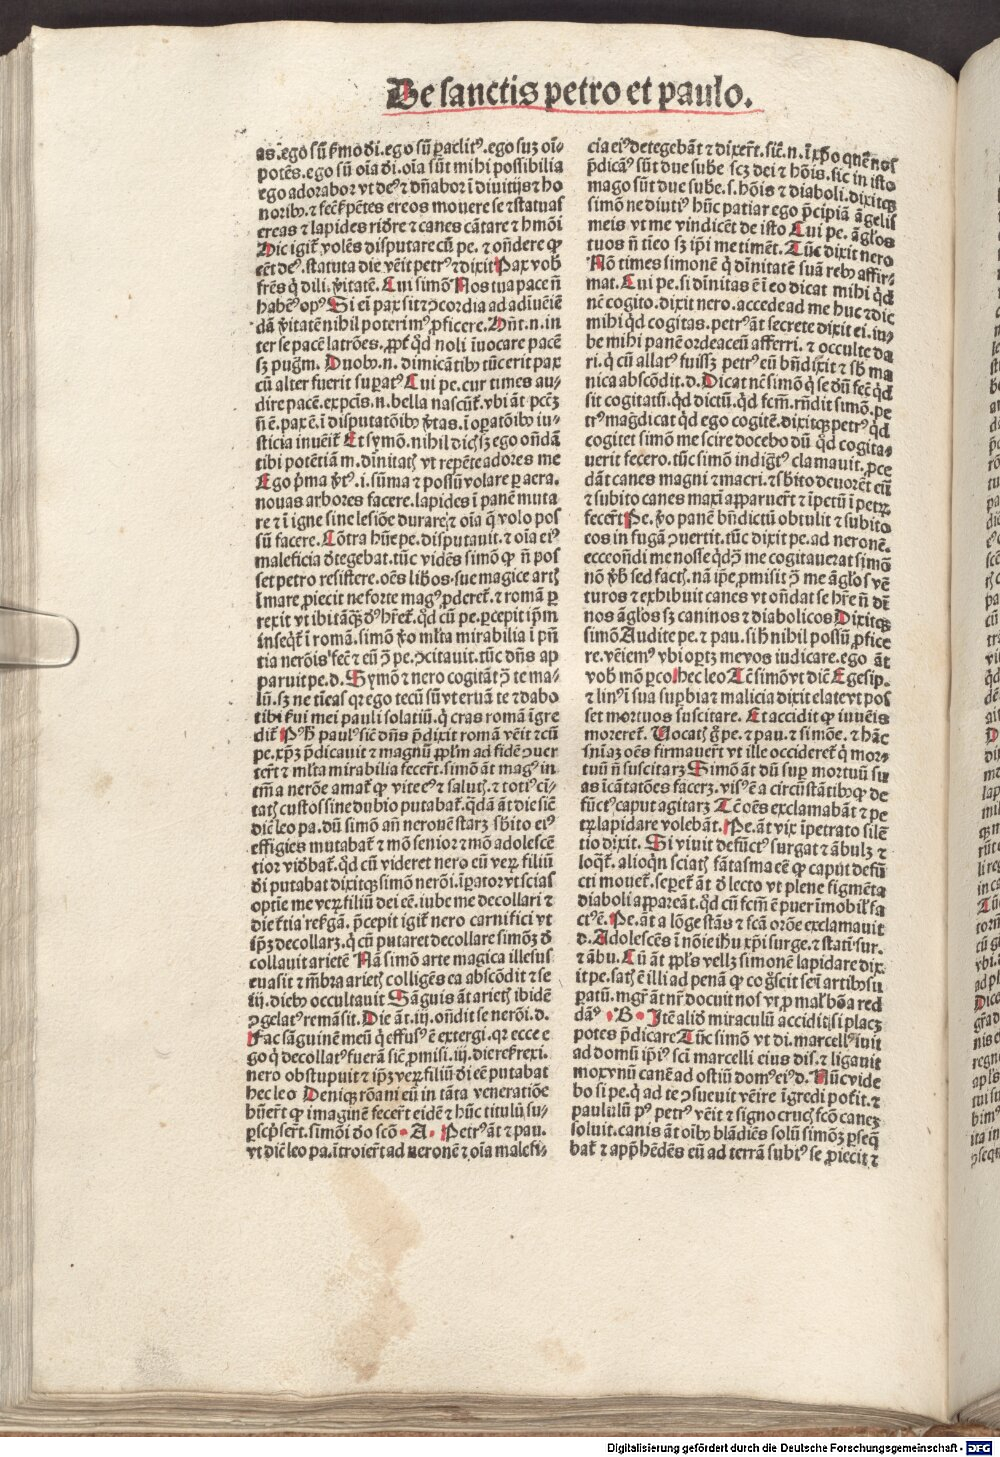 De sanctis petro et paulo.
as. ego sũ ẜmo d̓i. ego sũ ꝑaclitꝰ. ego suꝫ oĩ-
potẽs. ego sũ oĩa d̓i. oĩa sũt mihi possibilia
ego adorabor vt deꝰ ⁊ dñabor ĩ diuitijs ⁊ ho
noribꝰ. ⁊ fecẜ pẽtes ereos mouere se ⁊ statuas
ereas ⁊ lapides rid̓re ⁊ canes cãtare ⁊ hmõi
Hic igiẗ volẽs disputare cũ pe. ⁊ oñdere ꝙ
eẽt deꝰ. statuta die vẽit petrꝰ ⁊ dixit Pax vob̃
frẽs q̇ dili. v̓itatẽ. Cui simõ Nos tua pace ñ
habeꝰ opꝰ Si eĩ pax sit ⁊ ꝯcordia ad adiueĩẽ
dã v̓itatẽ nihil poterimꝰ ꝓficere. Hñt. n. in
ter se pacẽ latrões. ꝓpt̓ qd̓ noli ĩuocare pacẽ
sꝫ pug̃m. Duobꝰ. n. dimicãtibꝰ tũc erit pax
cũ alter fuerit suꝑatꝰ Cui pe. cur times au-
dire pacẽ. ex pctĩs. n. bella nascũt̃. vbi ãt pctẽ
ñ ẽ. pax ẽ. ĩ disputatõibꝰ v̓itas. ĩ oꝑatõibꝰ iu-
sticia inueĩt̃ Et symõ. nihil dicis sꝫ ego oñdã
tibi potẽtiã m. diñitatꝭ vt repẽte adores me
Ego ṗma v̓tꝰ. i. sũma ⁊ possũ volare ꝑ aera.
nouas arbores facere. lapides ĩ panẽ muta
re ⁊ ĩ igne sine lesiõe durare ⁊ oĩa q̃ volo pos
sũ facere. Cõtra hũc pe. disputauit. ⁊ oĩa eiꝰ
maleficia d̓tegebat. tũc vidẽs simõ ꝙ ñ pos
set petro resistere. oẽs libꝛos sue magice artꝭ
ĩ mare ꝓiecit ne forte magꝰ ꝓderet̃. ⁊ romã ꝑ
rexit vt ibi tãꝙꝫ d̓ꝰ hr̃et̃. qd̓ cũ pe. ꝑcepit ip̃m
ĩnseq̃t̃ ĩ romã. simõ v̓o ml̃ta mirabilia ĩ pñ
tia nerõis fec̃ ⁊ eũ ꝯ̃ pe. ꝯcitauit. tũc dñs ap
paruit pe. d. Symõ ⁊ nero cogitãt ꝯ̃ te ma-
lũ. sꝫ ne tĩeas qꝛ ego tecũ sũ vt eruã te ⁊ dabo
tibi ẜui mei pauli solatiũ. q̇ cras romã ĩgre
diẗ Pꝰ h̓ paulꝰ sic̃ dñs p̃dixit romã vẽit ⁊ cũ
pe. xp̃ꝫ p̃dicauit ⁊ magnũ ppl̃m ad fidẽ ꝯuer
ter̃t ⁊ ml̃ta mirabilia fecer̃t. simõ ãt magꝰ in
tm̃ a nerõe amat̃ ꝙ vite eiꝰ ⁊ salutꝭ. ⁊ totiꝰ ci-
tatꝭ custos sine dubio putabat̃. q̇dã ãt die sic̃
dic̃ leo pa. dũ simõ añ neronẽ starꝫ sb̓ito eiꝰ
effigies mutabat̃ ⁊ mõ senior ⁊ mõ adolescẽ
tior vid̓bat̃. qd̓ cũ videret nero eũ veꝝ filiũ
d̓i putabat dixitqꝫ simõ nerõi. ĩꝑator vt scias
optie me veꝝ filiũ dei eẽ. iube me decollari ⁊
die ẗtia resẜgã. p̃cepit igiẗ nero carnifici vt
ip̃ꝫ decollarꝫ. q̇ cũ putaret decollare simõꝫ d̓
collauit arietẽ Nã simõ arte magica illesus
euasit ⁊ mẽbra arietꝭ colligẽs ea abscõdit ⁊ se
iij. diebꝰ occultauit Sãguis ãt arietꝭ ibidẽ
ꝯgelatꝰ remãsit. Die ãt. iij. oñdit se nerõi. d.
Fac sãguinẽ meũ q̇ effusꝰ ẽ extergi. qꝛ ecce e
go q̇ decollatꝰ fuerã sic̃ ꝓmisi. iij. die resẜrexi.
nero obstupuit ⁊ ip̃ꝫ veꝝ filiũ d̓i eẽ putabat
hec leo Deniqꝫ rõani eũ in tãta veneratiõe
hũer̃t ꝙ imaginẽ fecer̃t eidẽ ⁊ hũc titulũ su-
ꝑscṗser̃t. simõi d̓o scõ · A · Petrꝰ ãt ⁊ pau.
vt dic̃ leo pa. ĩtroier̃t ad neronẽ ⁊ oĩa malefi-
cia eiꝰ detegebãt ⁊ dixer̃t. sic̃. n. ĩ xp̃o quẽ nos
p̃dicaꝰ sũt due sube scꝫ dei ⁊ hõis. sic in isto
mago sũt due sube. s. hõis ⁊ diaboli. dixitqꝫ
simõ ne diutiꝰ hũc patiar ego p̃cipiã ãgelis
meis vt me vindicẽt de isto Cui pe. ãgl̓os
tuos ñ tĩeo sꝫ ip̃i me timẽt. Tũc dixit nero
Nõ times simonẽ q̇ diñitatẽ suã rebꝰ affir-
mat. Cui pe. si diñitas ẽ ĩ eo dicat mihi qd̓
nẽc cogito. dixit nero. accede ad me huc ⁊ dic
mihi qd̓ cogitas. petrꝰ ãt secrete dixit ei. iu-
be mihi panẽ ordeaceũ afferri. ⁊ occulte da
ri. q̇ cũ allatꝰ fuissꝫ petrꝰ eũ bñdixit ⁊ sb̓ ma
nica abscõdit. d. Dicat nc̃ simõ q̇ se d̓ũ fec̃ qd̓
sit cogitatũ. qd̓ dictũ. qd̓ fcm̃. rñdit simõ. pe
trꝰ mag̓ dicat qd̓ ego cogitẽ. dixitqꝫ petrꝰ qd̓
cogitet simõ me scire docebo dũ qd̓ cogita-
uerit fecero. tũc simõ indig̃tꝰ clamauit. ꝓce
dãt canes magni ⁊ macri. ⁊ sb̓ito deuorẽt eũ
⁊ subito canes maxĩ apparuer̃t ⁊ ĩpetũ ĩ petꝝ
fecer̃t Pe. v̓o panẽ bñdictũ obtulit ⁊ subito
eos in fugã ꝯuertit. tũc dixit pe. ad neronẽ.
ecce oñdi me nosse qd̓ ꝯ̃ me cogitauerat simõ
nõ v̓b̓ sed factꝭ. nã ip̃e ꝓmisit ꝯ̃ me ãgl̓os vẽ
turos ⁊ exhibuit canes vt oñdat se hr̃e ñ di̓
nos ãgl̓os sꝫ caninos ⁊ diabolicos Dixitqꝫ
simõ Audite pe. ⁊ pau. si h̓ nihil possũ ꝓfice
re. vẽiemꝰ vbi oꝑtꝫ me vos iudicare. ego ãt
vob̃ mõ ꝑco hec leo Tc̃ simõ vt dic̃ Egesip.
⁊ linꝰ ĩ sua suꝑbia ⁊ malicia dixit elate vt pos
set mortuos suscitare. Et accidit ꝙ iuuẽis
moreret̃. Vocatꝭ g̊ pe. ⁊ pau. ⁊ simõe. ⁊ hãc
sñiaꝫ oẽs firmauer̃t vt ille occideret̃ q̇ mor-
tuũ ñ suscitarꝫ Simõ ãt dũ suꝑ mortuũ su
as ĩcãtatões facerꝫ. visꝰ ẽ a circũstãtibꝰ ꝙ de
fũctꝰ caput agitarꝫ Tc̃ oẽs exclamabãt ⁊ pe
tꝝ lapidare volebãt. Pe. ãt vix ĩpetrato silẽ
tio dixit. Si viuit defũctꝰ surgat ⁊ ãbulꝫ ⁊
loq̃t̃. alioqñ sciatꝭ fãtasma eẽ ꝙ caput defũ
cti mouet̃. seꝑet̃ ãt d̓ lecto vt plene figmẽta
diaboli appareãt. qd̓ cũ fcm̃ ẽ puer ĩmobil̓ fa
ctꝰ ẽ. Pe. ãt a lõge stãs ⁊ fcã orõe exclamauit
d. Adolescẽs ĩ nõie ihũ xp̃i surge. ⁊ statĩ sur.
⁊ ãbu. Cũ ãt ppl̓s vellꝫ simonẽ lapidare dix
it pe. satꝭ ẽ illi ad penã ꝙ cog̓scit se ĩ artibꝰ su
ꝑatũ. mgr̃ ãt nr̃ docuit nos vt ꝓ mal̓ bõa red
dãꝰ · B · Itẽ aliõ miraculũ accidit si placꝫ
potes p̃dicare Tũc simõ vt di. marcellꝰ iuit
ad domũ ip̃iꝰ scĩ marcelli eius dis. ⁊ ligauit
mox vnũ canẽ ad ostiũ domꝰ eiꝰ d. Nũc vide
bo si pe. q̇ ad te ꝯsueuit vẽire ĩgredi pot̃it. ⁊
paululũ pꝰ petrꝰ vẽit ⁊ signo crucꝭ fcõ canẽ
soluit. canis ãt oĩbꝰ blãdiẽs solũ simõꝫ ꝑseq̃
bat̃ ⁊ app̃hẽdẽs eũ ad terrã subiꝰ se ꝓiecit ⁊
Digitalisierung gefördert durch die Deutsche Forschungsgemeinschaft - DFG